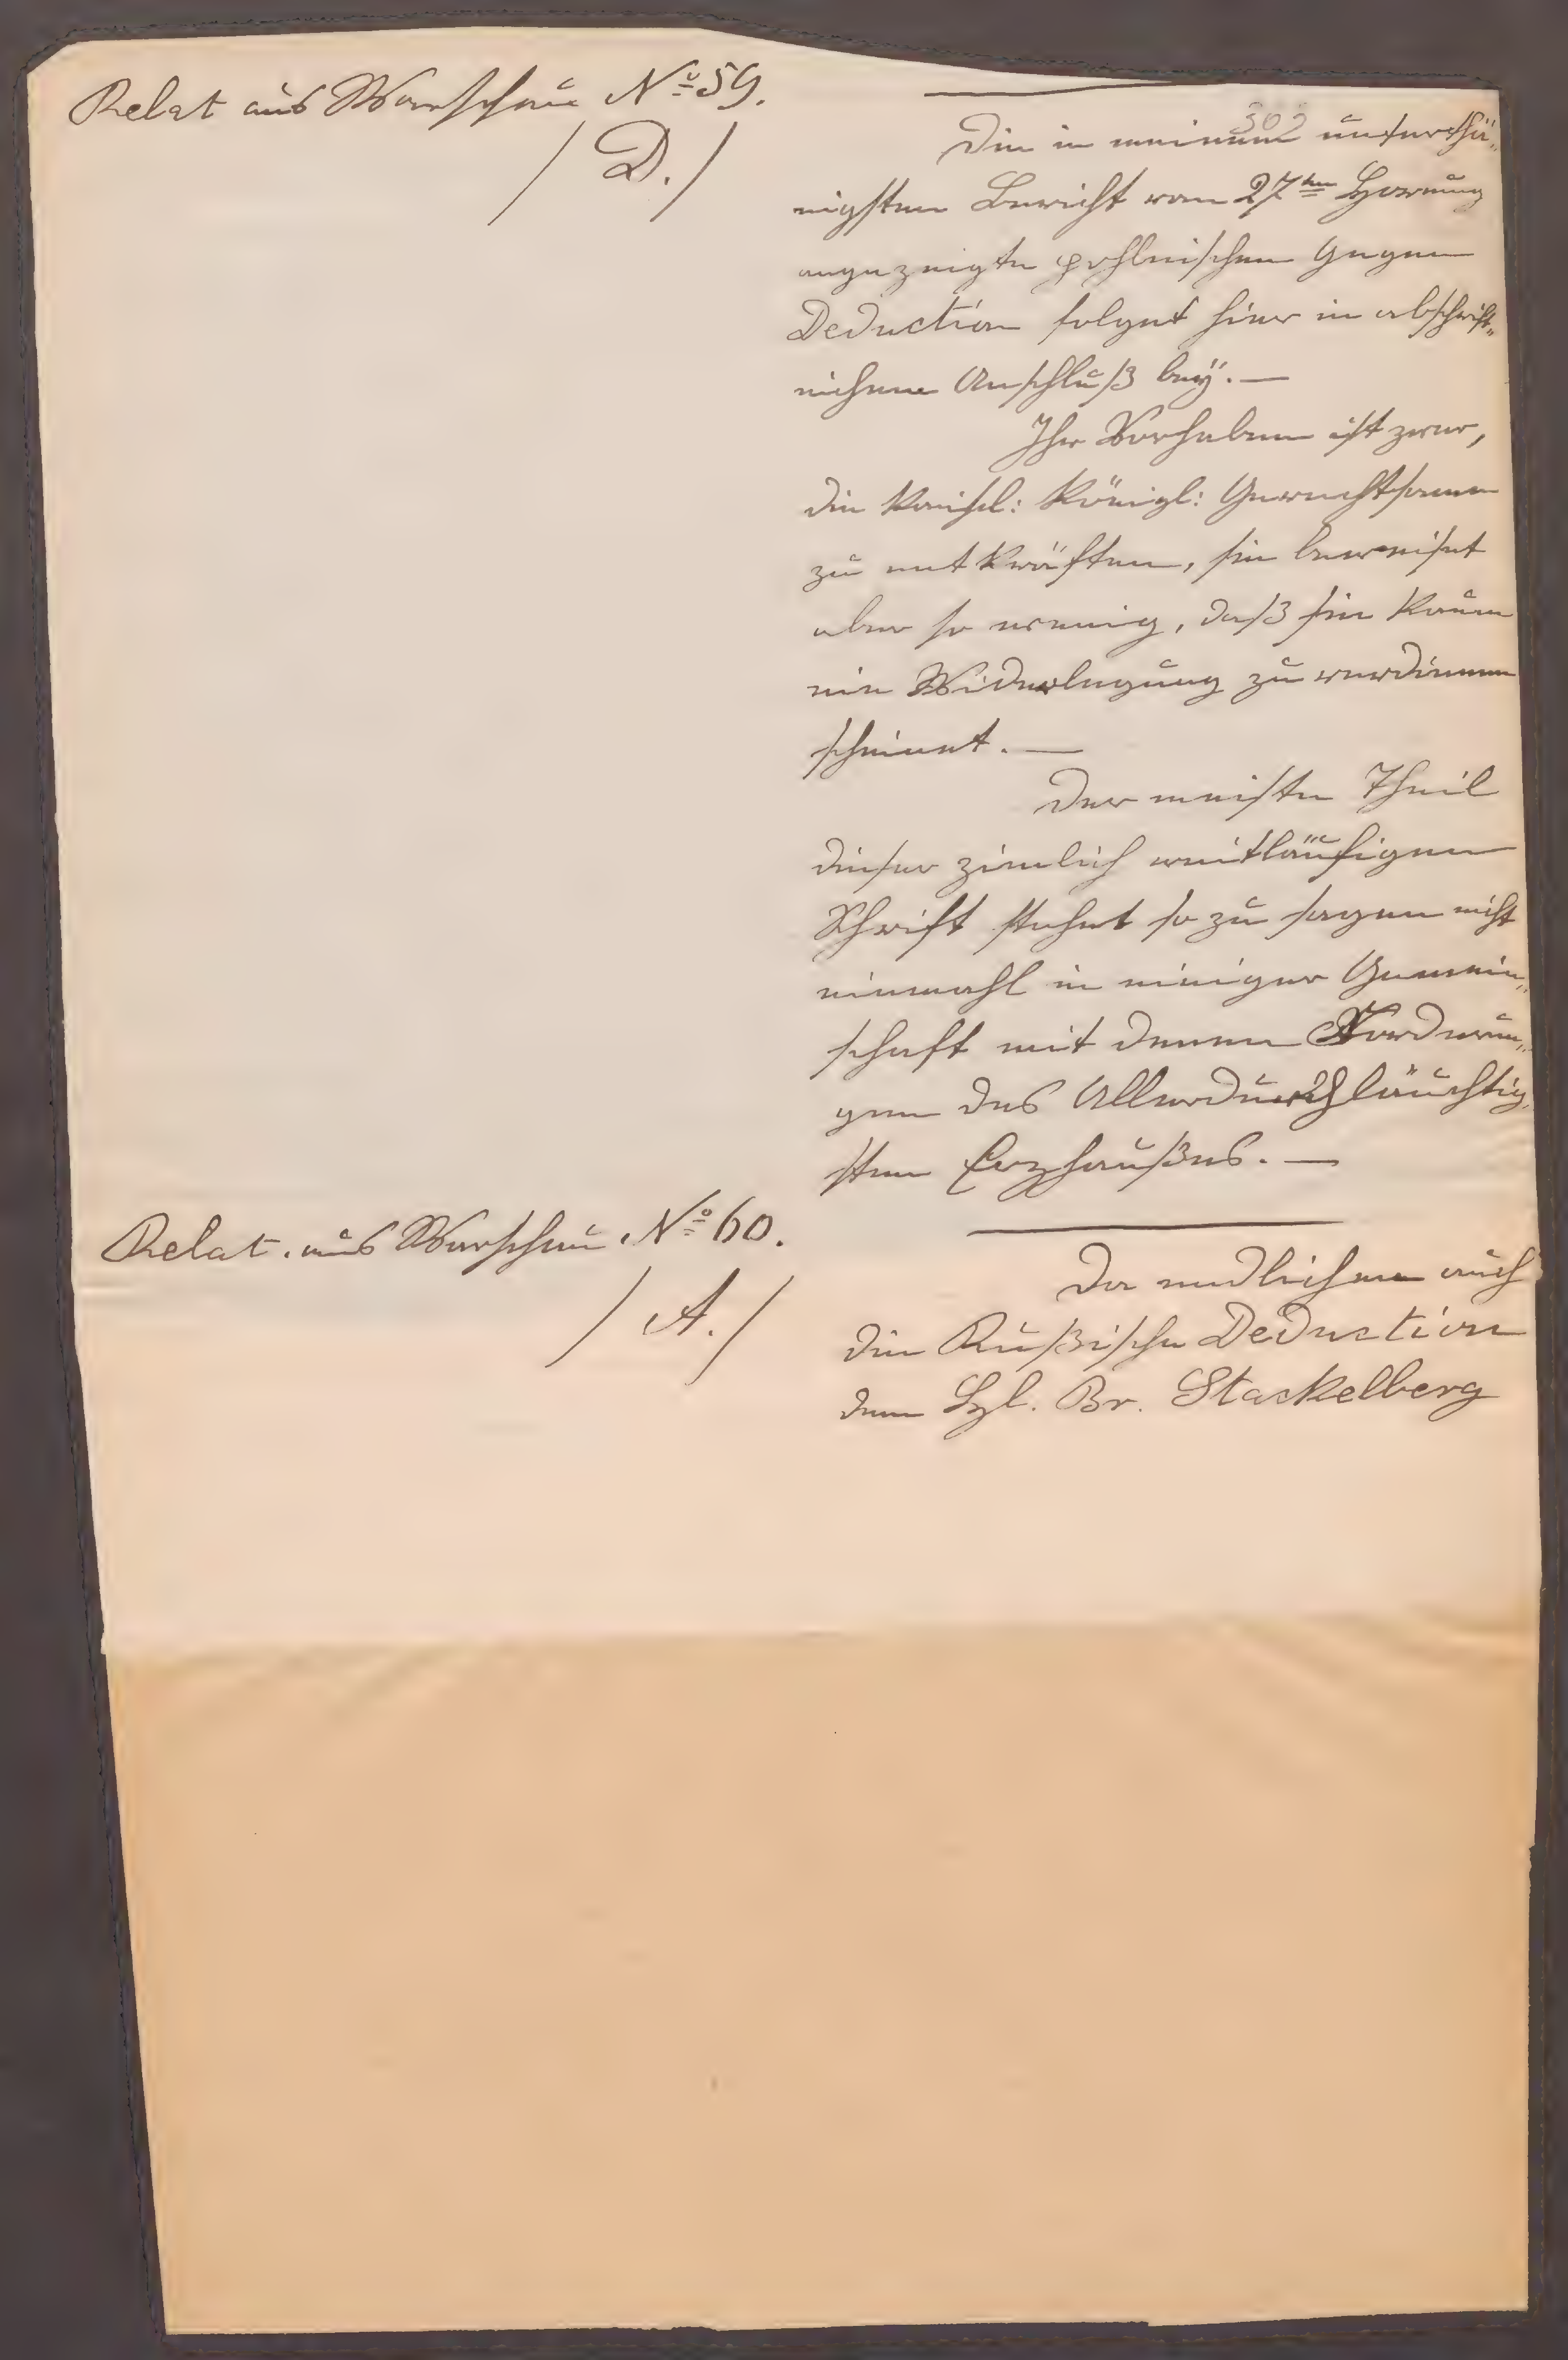 Relat aus Warschau No 59.
/ D. /
302
Die in meinem unterthä„
nigsten Bericht vom 27ten Hornung
angezeigte pohlnischen Gegen
Deduction folget hier in abschrift„
lichem Anschluß bey. —
Ihr Vorhaben ist zwar,
die Kaisel: Königl: Gerechtsame
zu entkräften, sie beweiset
aber so wenig, daß sie kaum
eine Widerlegung zu verdienen
scheinet. —
Der meiste Theil
dieser zimlich weitläufigen
Schrift stehet so zu sagen nicht
einmahl in einiger Gemein„
schaft mit denen Forderun„
gen des Allerdurchläuchtig„
sten Erzhaußes. —
Relat. aus Warschau No 60.
/ A. /
Da endlichen auch
die Rußische Deduction
dem Br. Stackelberg